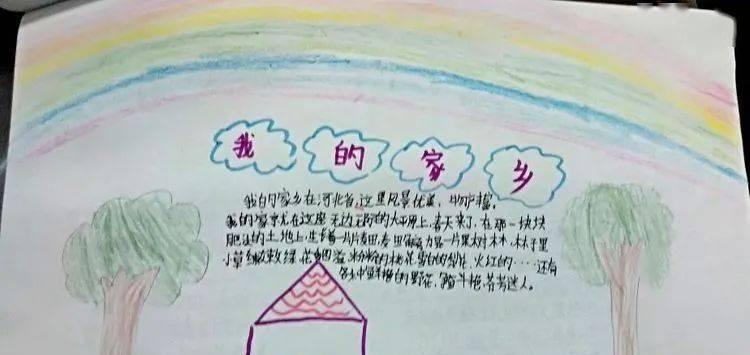 我的家乡
我的家乡在河北省,这里风景优美,
我的家就在这座无边无际的大平原上,春天来了,在那一块块
肥沃的土地上,生长着一片片麦田,麦田 一片果树林,林子里
小草 绿, 粉粉的桃花雪白的梨花,火红的……还有
各 的野花, 斗艳, 迷人。